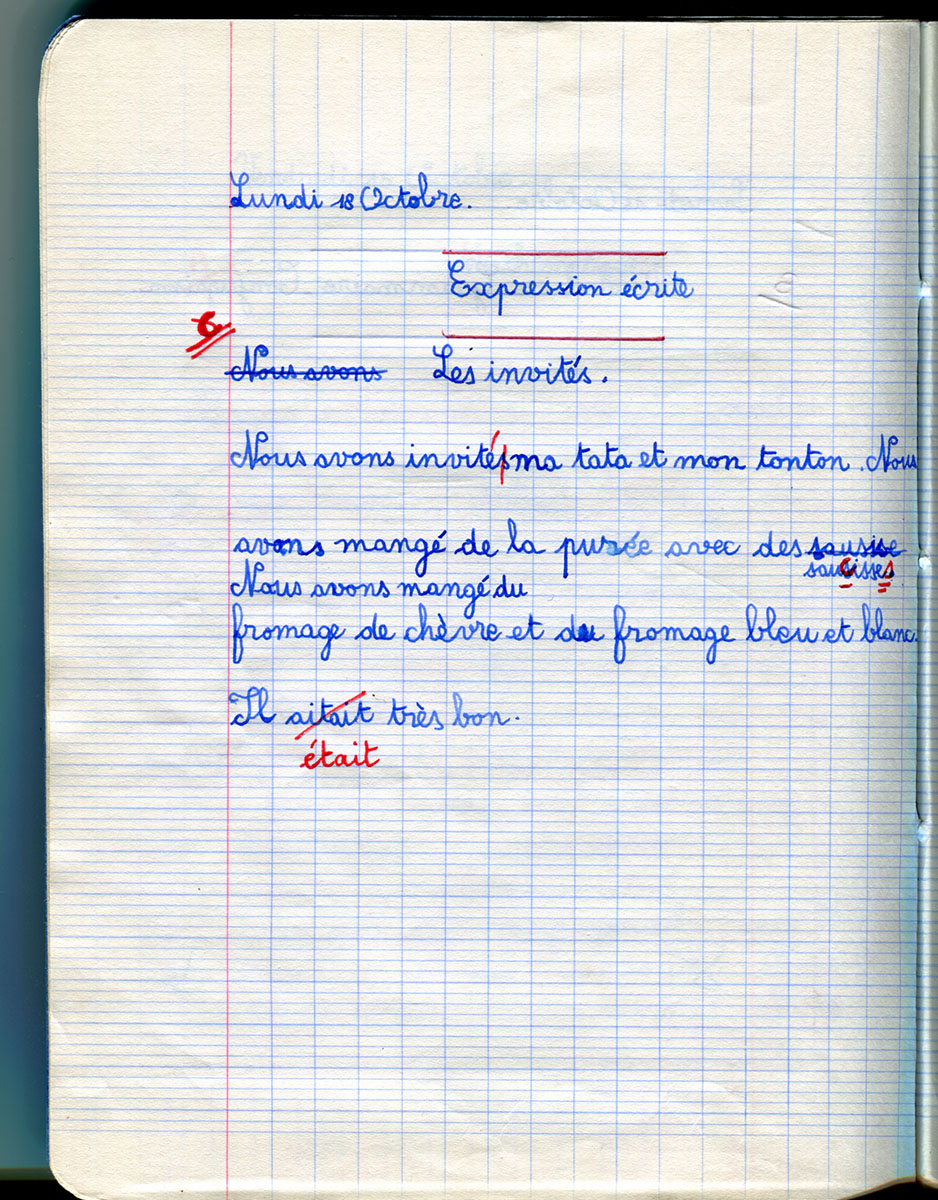 Lundi 18 Octobre.
Expression écrite
Nous avons Les invités.
Nous avons invités ma tata et mon tonton. Nous
avons mangé de la purée avec des sausise
saucisses
Nous avons mangé du
fromage de chèvre et du fromage bleu et blanc.
Il aitait très bon.
était